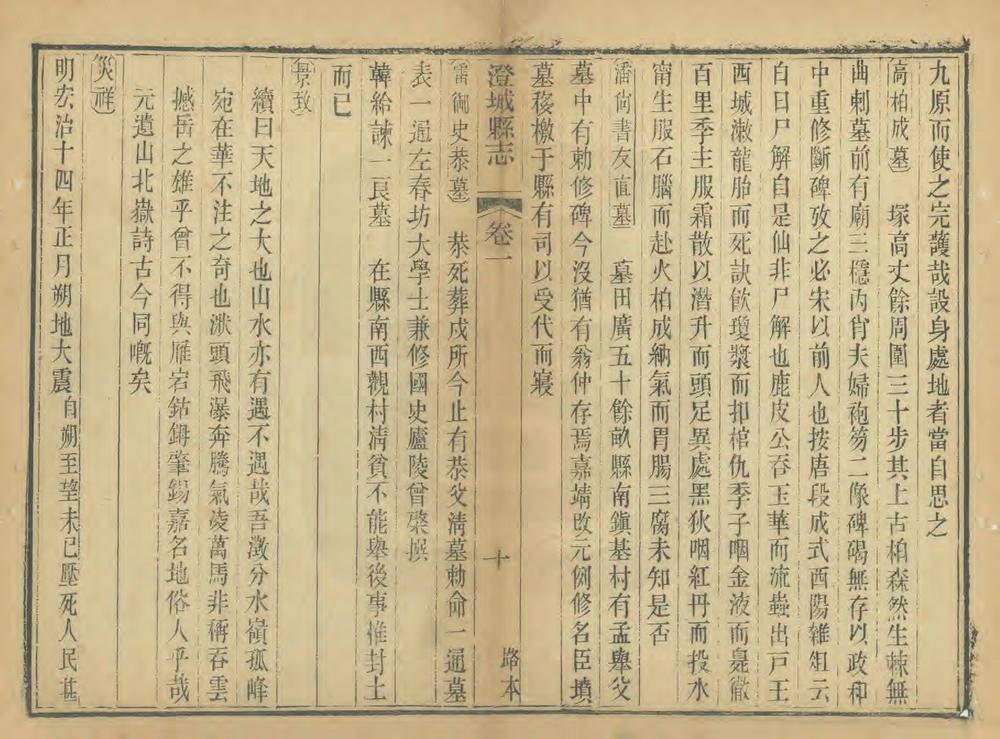 九原而使之完護哉設身處地者當自思之
高柏成墓 塚高丈餘周圍三十步其上古柏森然生棘無
曲刺墓前有廟三穩丙肖夫婦袍笏二像碑碣無存以政和
中重修斷碑攷之必宋以前人也按唐段成式酉陽雜俎云
白日尸解自是仙非尸解也鹿皮公吞玉華而流蟲出戸王
西城漱龍胎而死訣飲瓊漿而扣棺仇季子咽金液而臭徹
百里季主服霜散以潛升而頭足異處黑狄咽紅丹而投水
甯生服石腦而赴火柏成納氣而胃腸三腐未知是否
潘尙書友直墓 墓田廣五十餘畝縣南鎭基村有孟舉父
墓中有勅修碑今沒猶有翁仲存焉嘉靖改元例修名臣墳
墓移檄于縣有司以受代而寢
澄城縣志 卷一 十 路本
雷御史恭墓 恭死葬戍所今止有恭父淸墓勅命一通墓
表一通左春坊大學士兼修國史廬陵曾棨撰
韓給諫一良墓 在縣南西觀村淸貧不能舉後事惟封土
而已
景致
續曰天地之大也山水亦有遇不遇哉吾澂分水嶺孤峰
宛在華不注之奇也洑頭飛瀑奔騰氣凌萬馬非稱吞雲
撼岳之雄乎曾不得與雁宕鈷鉧肇錫嘉名地俗人乎哉
元遺山北嶽詩古今同嘅矣
災祥
明宏治十四年正月朔地大震自朔至望未已壓死人民甚